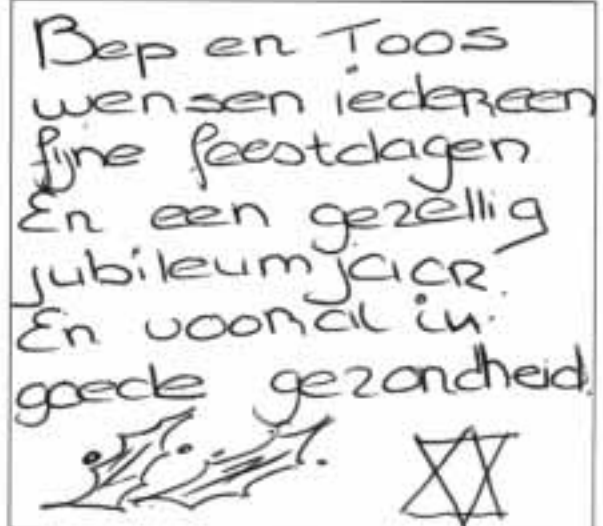 Bep en Toos
wensen iedereen
fijne feestdagen
En een gezellig
jubileumjaar.
En vooral in
goede gezondheid.